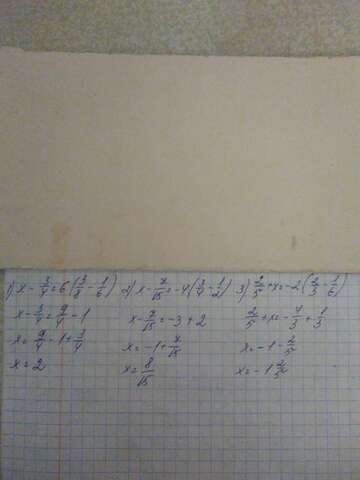 1) x - 3/4 = 6(3/8 - 1/6) 2) x - 7/15 = -4(3/4 - 1/2) 3) 2/5 + x = -2(2/3 - 1/6)
x - 3/4 = 9/4 - 1 x - 7/15 = -3 + 2 2/5 + x = -4/3 + 1/3
x = 9/4 - 1 + 3/4 x = -1 + 7/15 x = -1 - 2/5
x = 2 x = 8/15 x = -1 2/5